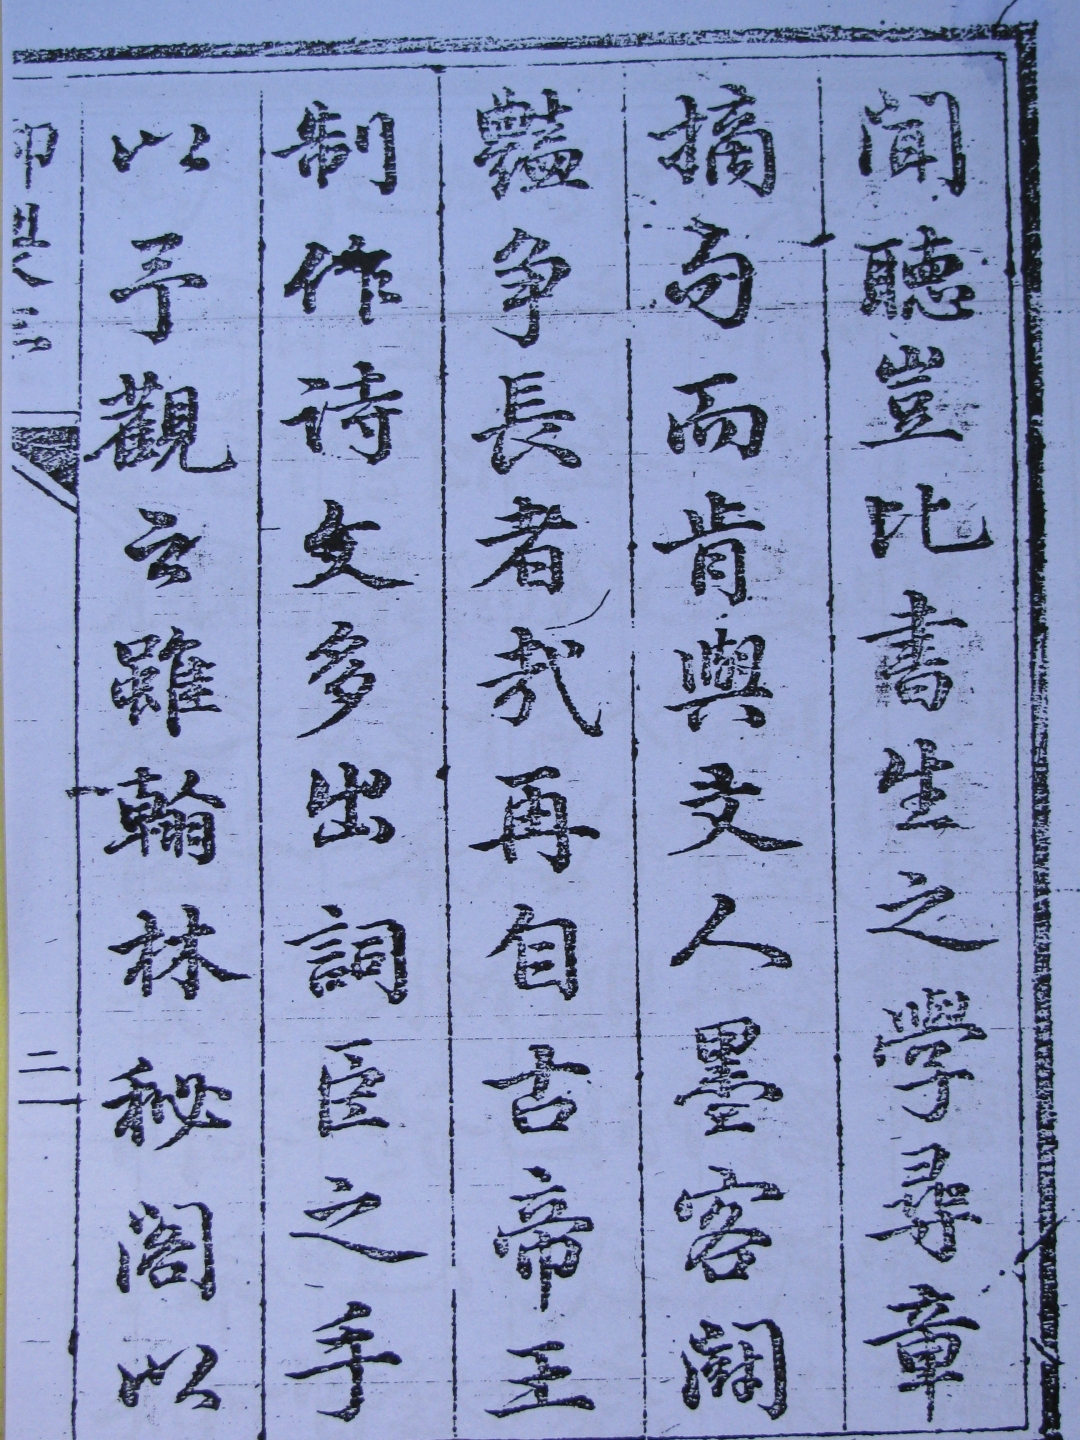 聞聽豈比書生之學尋章
摘句而肯與文人墨客鬪
豔爭長者哉再自古帝王
制作詩文多出詞臣之手
以予觀之雖翰林秘閣以
二